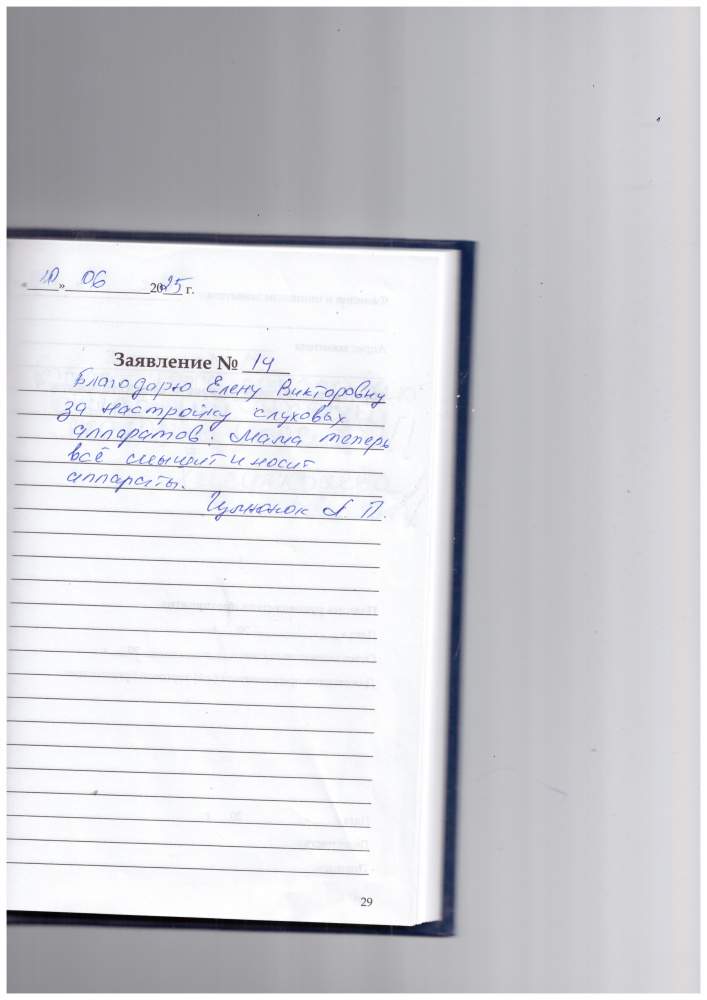 «10» 06 2025 г.
Заявление № 14
Благодарю Елену Викторовну
за настройку слуховых
аппаратов. Мама теперь
всё слышит и носит
аппараты.
Л. П.
29